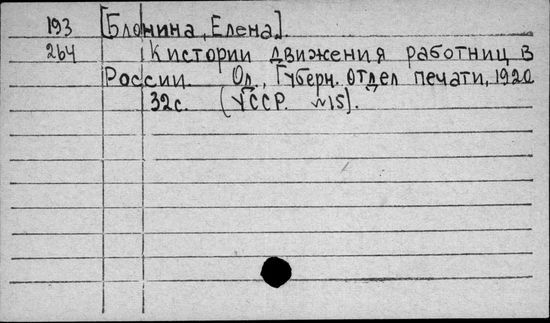 193 [Блонина, Елена].
264 К истории движения работниц в
России. Од., Губерн. отдел печати, 1920
32с. (УССР. №15).